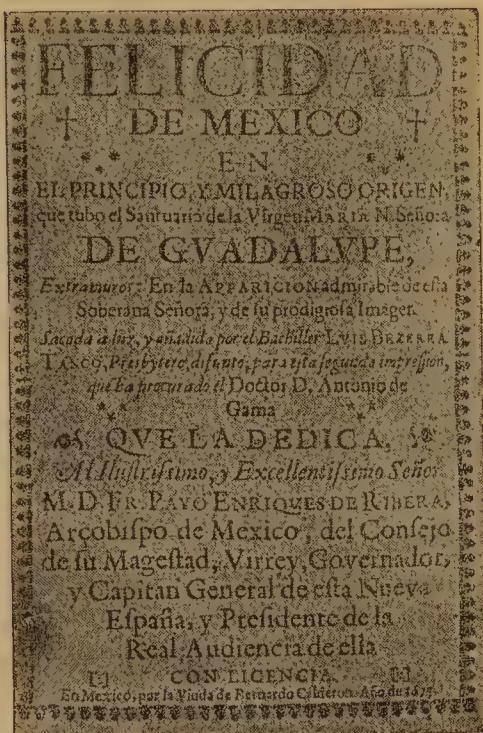 FELICIDAD
† DE MEXICO †
EN
EL PRINCIPIO, Y MILAGROSO ORIGEN,
que tubo el Santuario de la Virgen MARIA N. Señora
DE GVADALVPE,
Extramuros: En la APPARICION admirable de esta
Soberana Señora, y de su prodigiosa Imagen.
Sacada a luz, y añadida por el Bachiller LVIS BEZERRA
TANCO, Presbytero, difunto; para esta segunda impression,
que ha procurado el Doctor D. Antonio de
Gama
QVE LA DEDICA,
Al Ilustrissimo, y Excellentissimo Señor
M. D. FR. PAYO ENRIQUES DE RIBERA,
Arçobispo de Mexico, del Consejo
de su Magestad, Virrey, Governador,
y Capitan General de esta Nueva
España, y Presidente de la
Real Audiencia de ella
CON LICENCIA.
En Mexico, por la Viuda de Bernardo Calderon. Año de 1675.